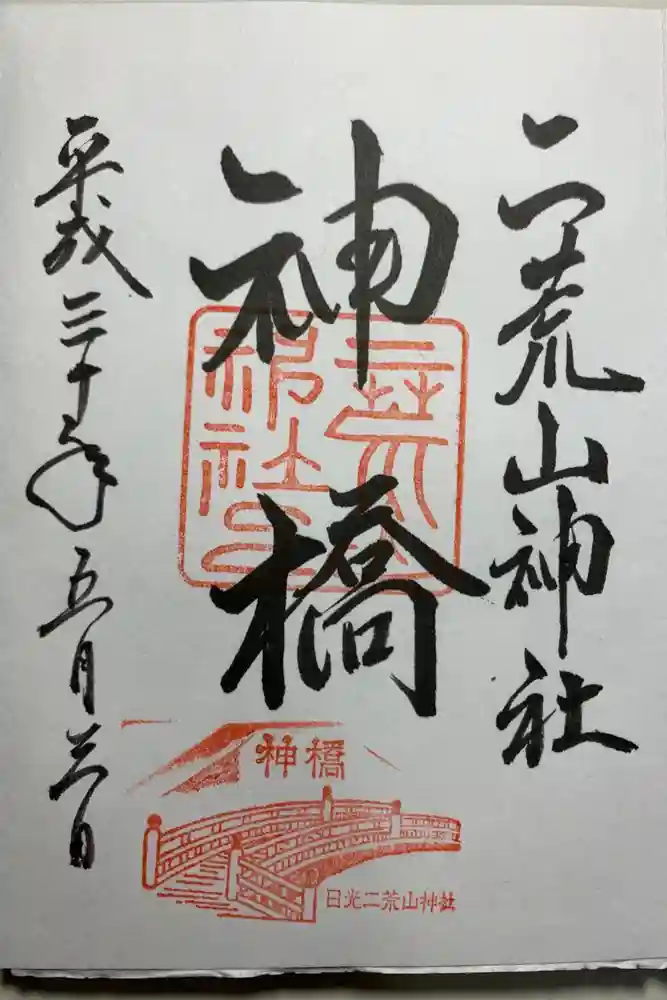 二荒山神社
神橋
平成三十年五月三日
二荒山神社之印
神橋
日光二荒山神社